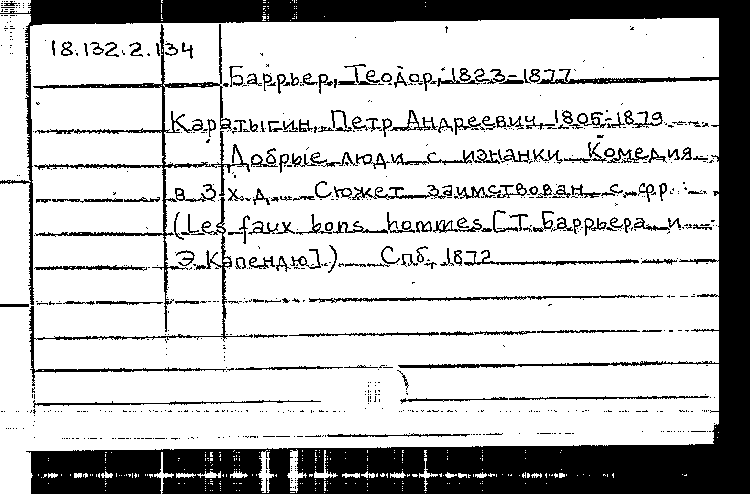 18.132.2.134
Баррьер, Теодор, 1823-1877
Каратыгин, Петр Андреевич, 1805-1879
Добрые люди с изнанки Комедия
в 3-х д. Сюжет заимствован с фр.:
(Les faux bons hommes [Т. Баррьера и
Э. Капендю].) Спб, 1872